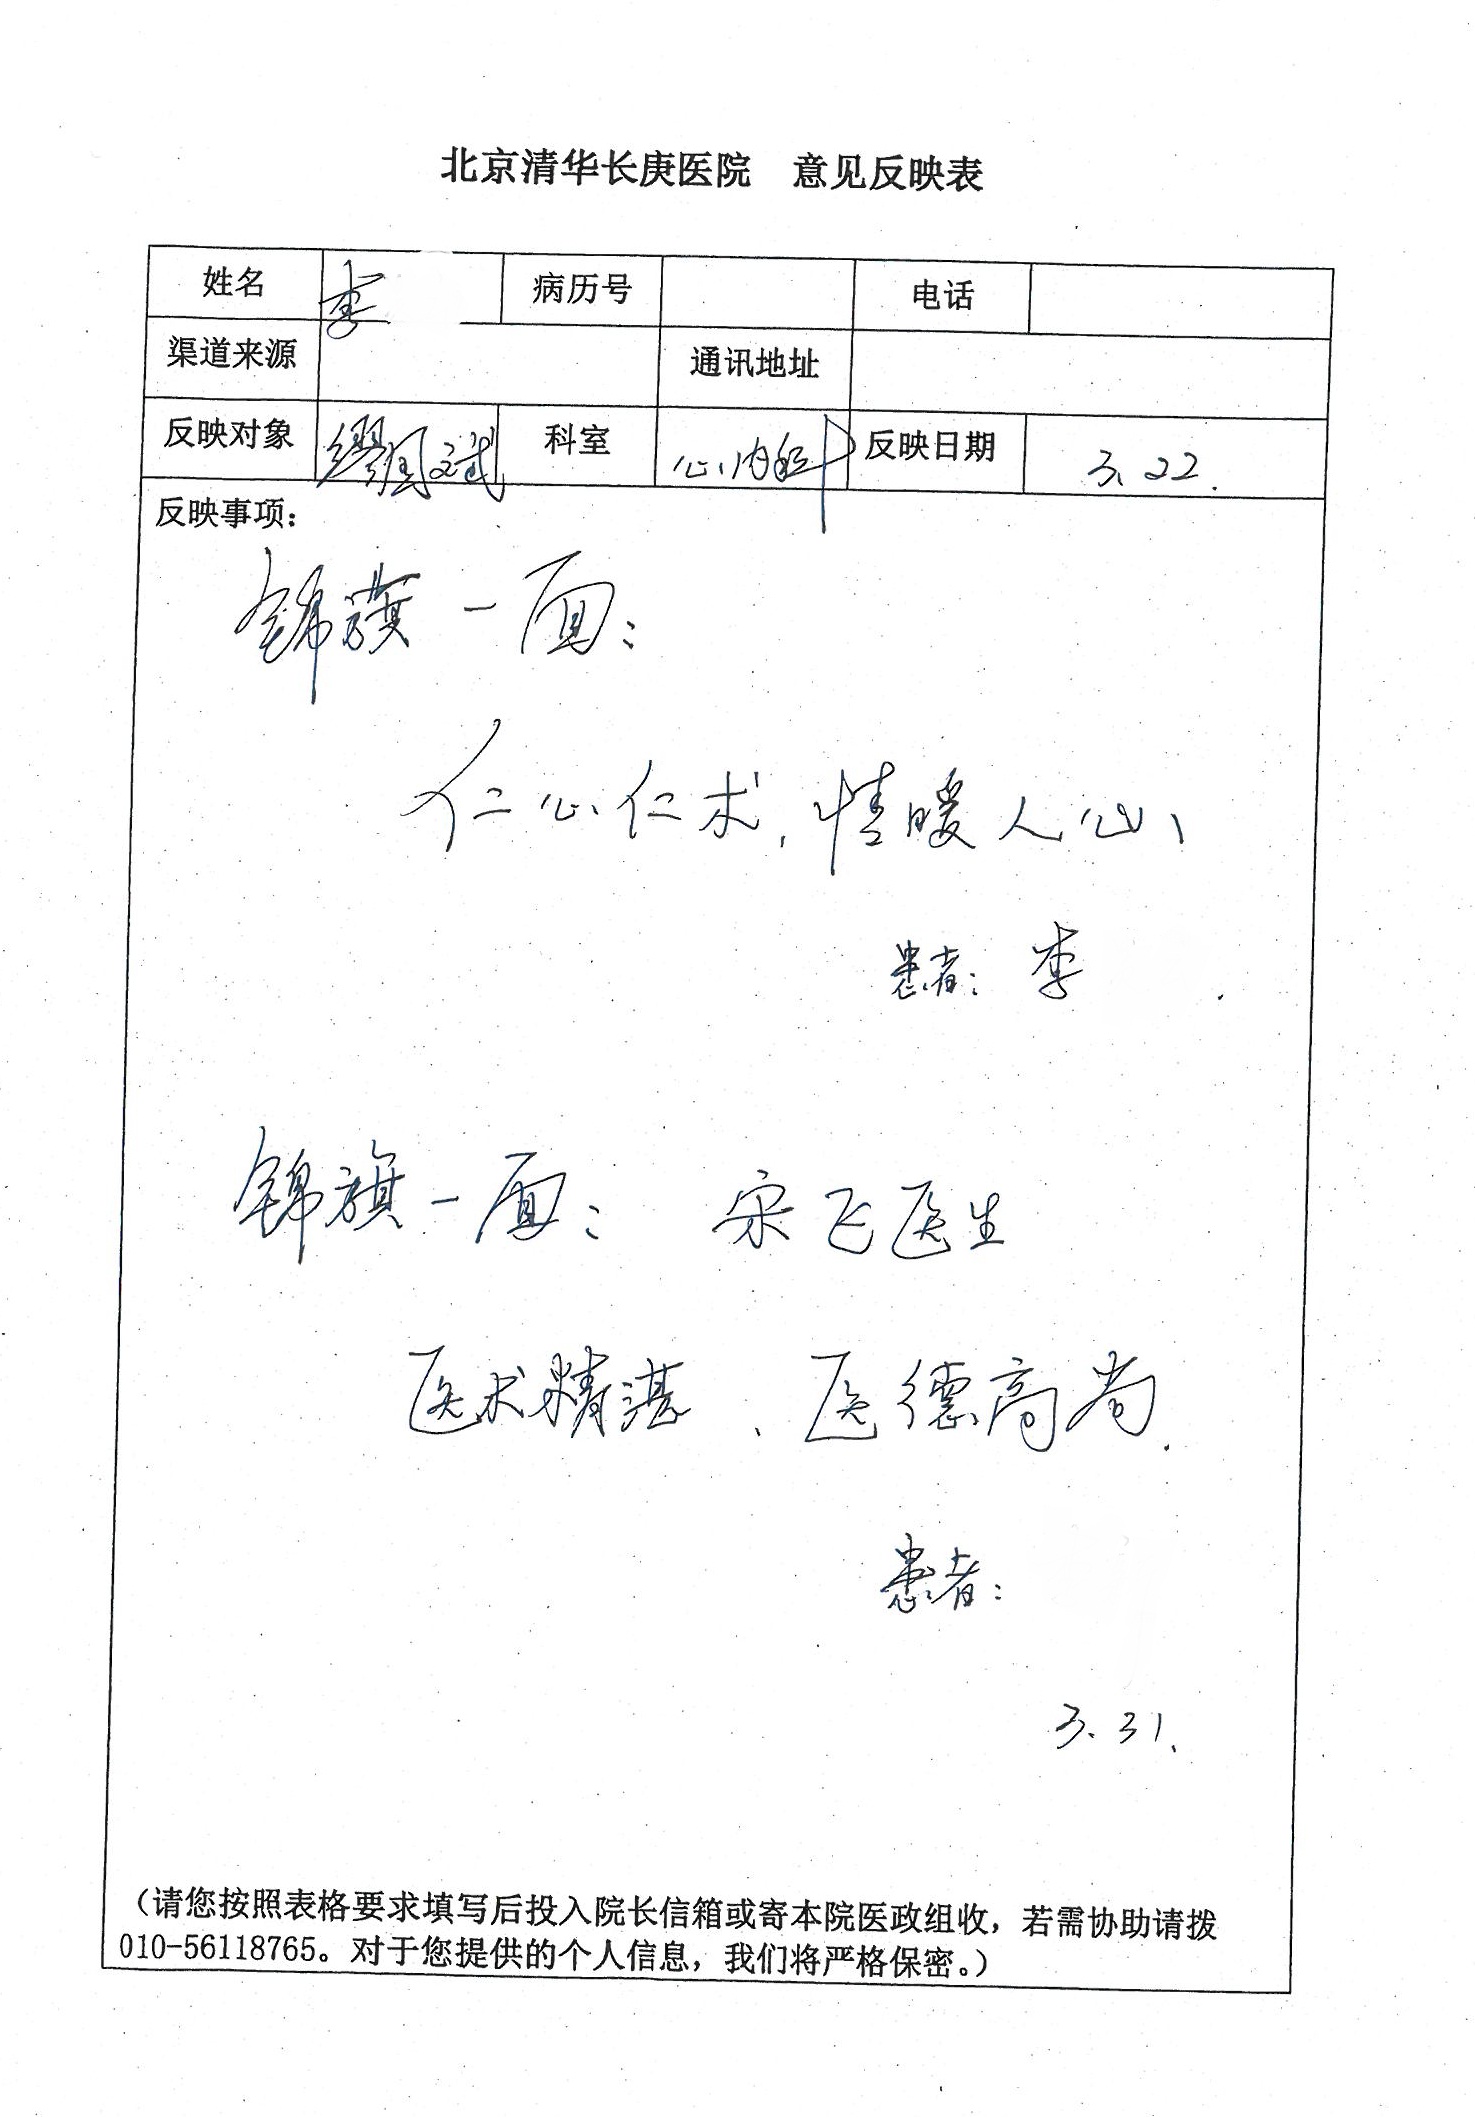 北京清华长庚医院 意见反映表
姓名 李 病历号 电话
渠道来源 通讯地址
反映对象 缪国斌 科室 心内科 反映日期 3.22.
反映事项：
锦旗一面：
仁心仁术，情暖人心
患者：李
锦旗一面：宋飞医生
医术精湛、医德高尚.
患者：
3.31.
（请您按照表格要求填写后投入院长信箱或寄本院医政组收，若需协助请拨
010-56118765。对于您提供的个人信息，我们将严格保密。）